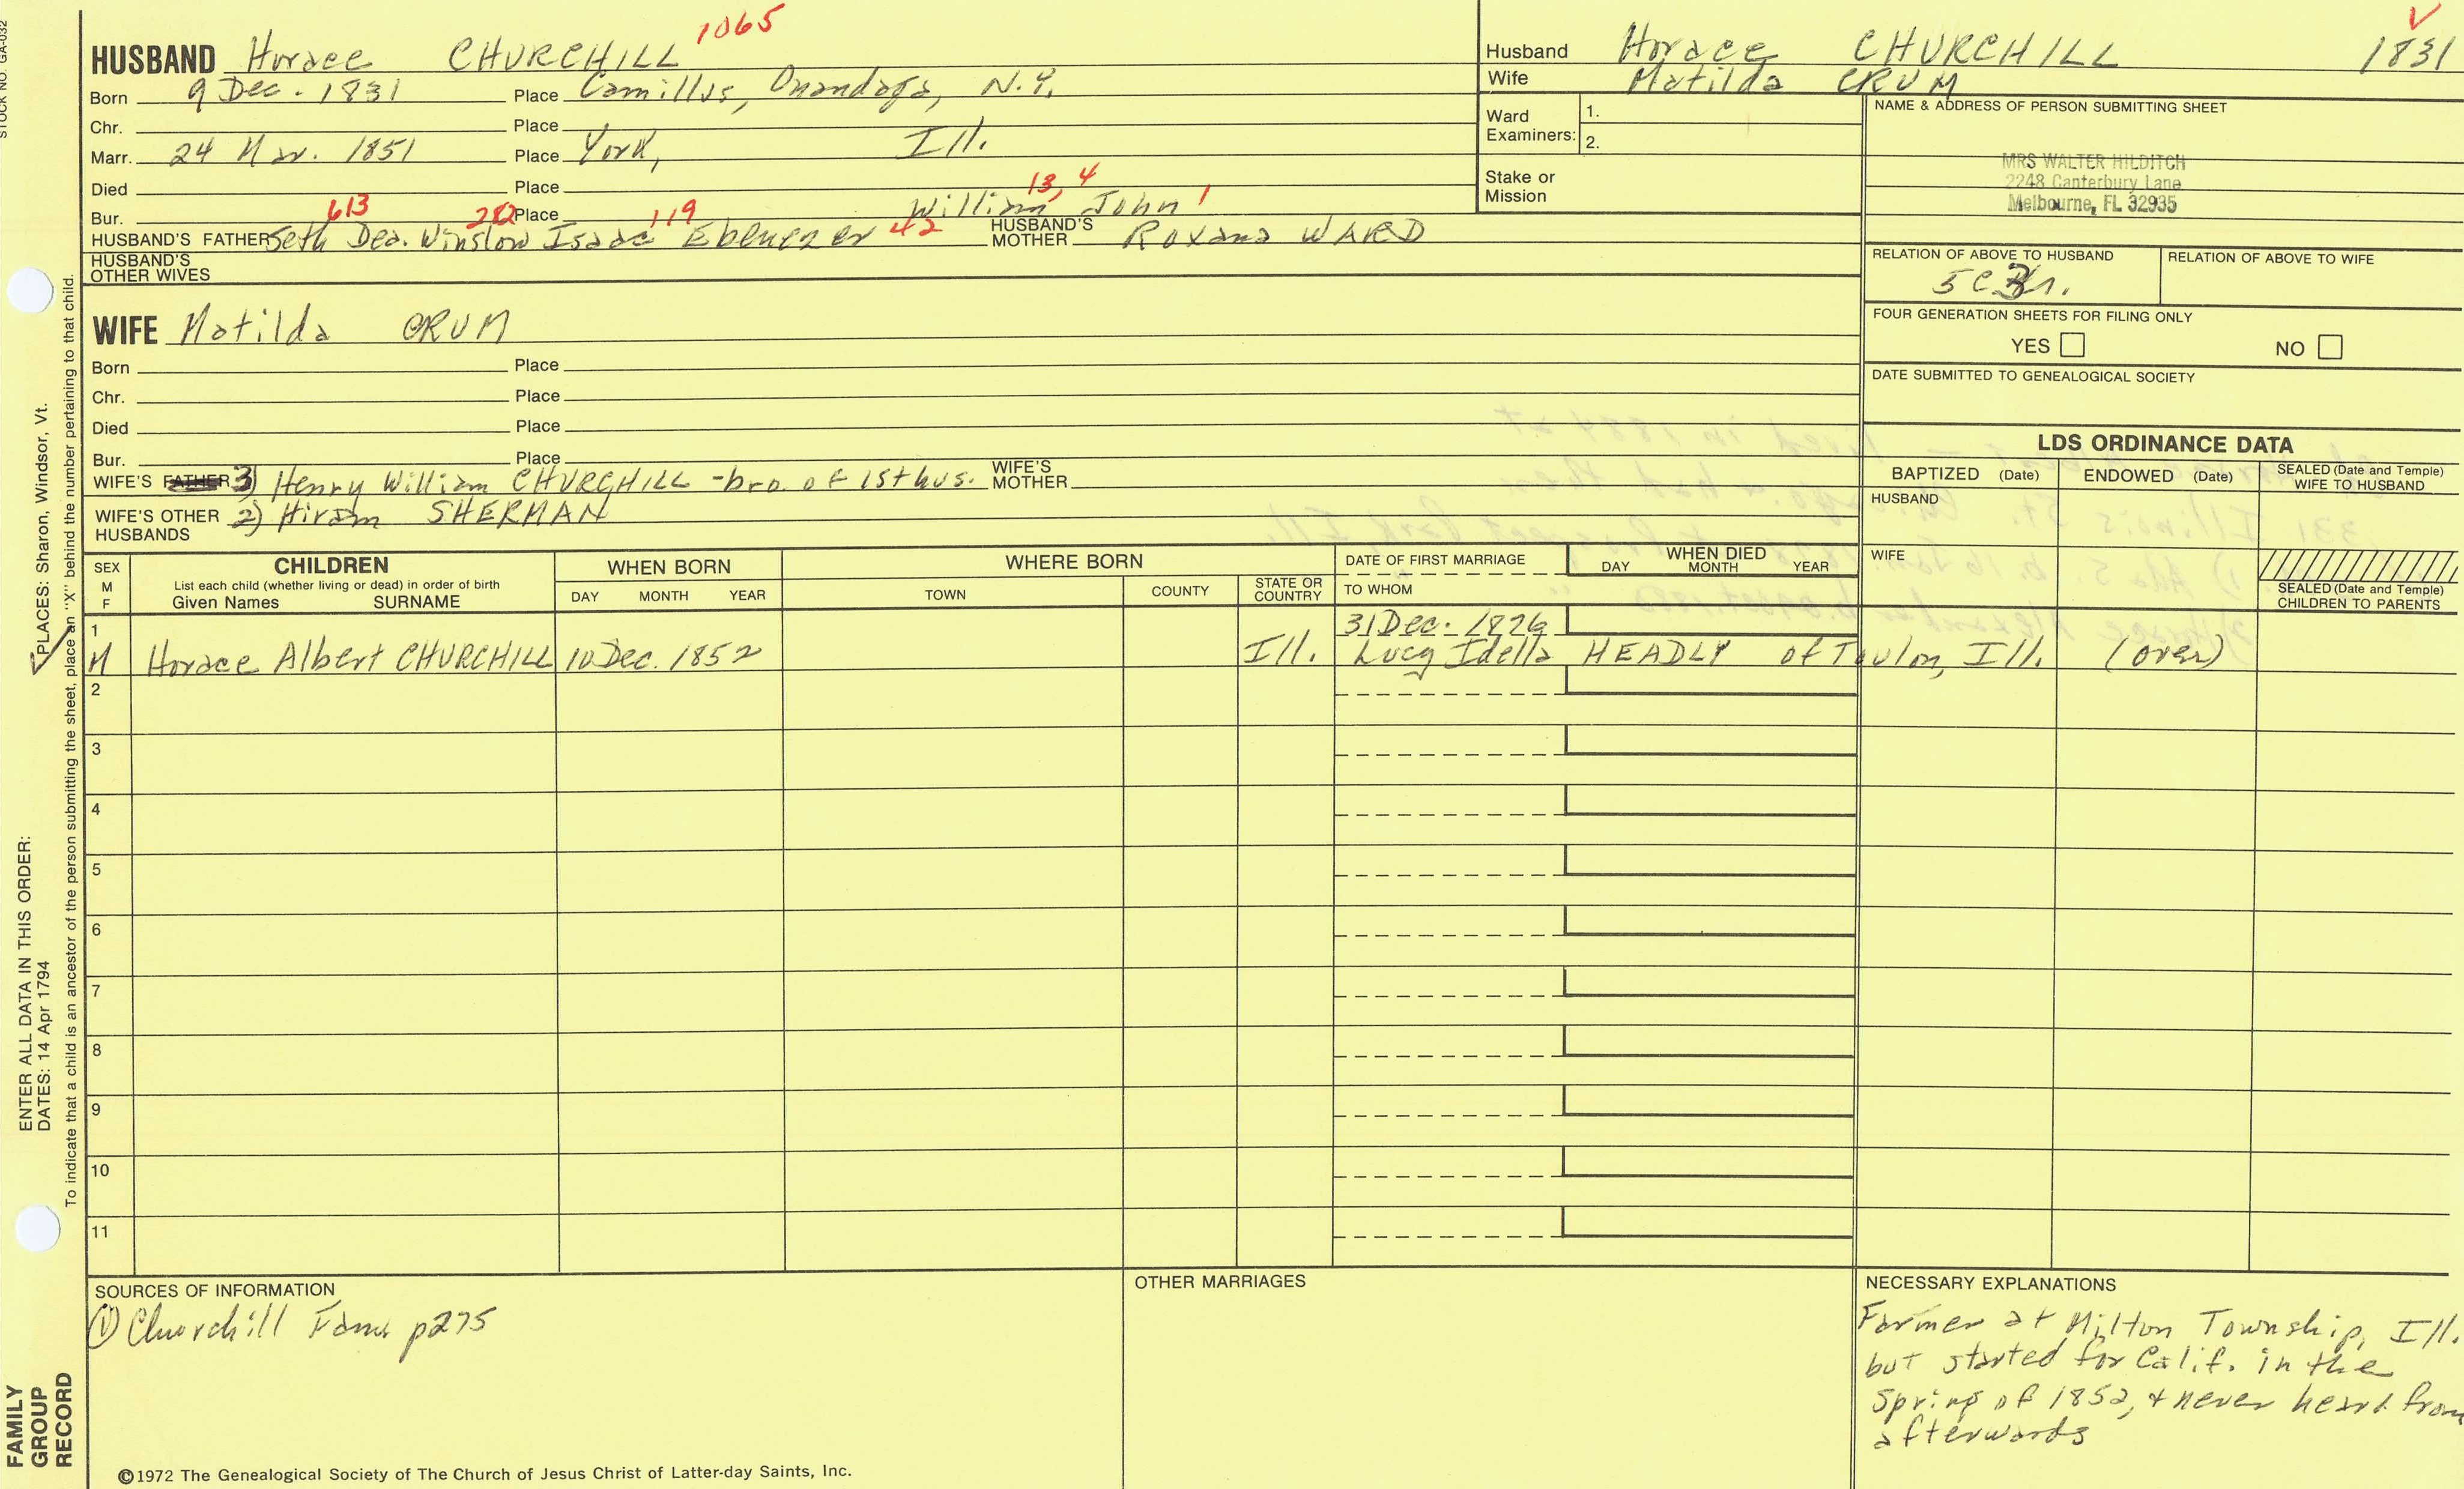 STOCK NO. GA-032
1065
HUSBAND Horace CHURCHILL
Born 9 Dec. 1831 Place Camillus, Onandaga, N.Y.
Chr. Place
Marr. 24 Mar. 1851 Place York, Ill.
Died Place
13, 4
Bur. Place William John 1
613 282 119
HUSBAND'S FATHER Seth Dea. Winslow Isaac Ebenezer 42 HUSBAND'S MOTHER Roxana WARD
HUSBAND'S OTHER WIVES
WIFE Matilda CRUM
Born Place
Chr. Place
Died Place
Bur. Place
WIFE'S FATHER 3) Henry William CHURCHILL - bro. of 1st hus. WIFE'S MOTHER
WIFE'S OTHER HUSBANDS 2) Hiram SHERMAN
Husband Horace CHURCHILL 1831
Wife Matilda CRUM
Ward Examiners: 1.
2.
Stake or Mission
NAME & ADDRESS OF PERSON SUBMITTING SHEET
MRS WALTER HILDITCH
2248 Canterbury Lane
Melbourne, FL 32935
RELATION OF ABOVE TO HUSBAND RELATION OF ABOVE TO WIFE
FOUR GENERATION SHEETS FOR FILING ONLY
YES NO
DATE SUBMITTED TO GENEALOGICAL SOCIETY
LDS ORDINANCE DATA
BAPTIZED (Date) ENDOWED (Date) SEALED (Date and Temple) WIFE TO HUSBAND
HUSBAND
WIFE
SEALED (Date and Temple) CHILDREN TO PARENTS
SEX M F
CHILDREN
List each child (whether living or dead) in order of birth
Given Names SURNAME
WHEN BORN
DAY MONTH YEAR
WHERE BORN
TOWN COUNTY STATE OR COUNTRY
DATE OF FIRST MARRIAGE
TO WHOM
WHEN DIED
DAY MONTH YEAR
1 31 Dec. 1876
M Horace Albert CHURCHILL 10 Dec. 1852 Ill. Lucy Idella HEADLY of Toulon, Ill. (over)
2
3
4
5
6
7
8
9
10
11
SOURCES OF INFORMATION
① Churchill Fam p275
OTHER MARRIAGES
NECESSARY EXPLANATIONS
Farmer at Milton Township, Ill.
but started for Calif. in the
Spring of 1852, & never heard from
afterwards
©1972 The Genealogical Society of The Church of Jesus Christ of Latter-day Saints, Inc.
ENTER ALL DATA IN THIS ORDER:
DATES: 14 Apr 1794 PLACES: Sharon, Windsor, Vt.
To indicate that a child is an ancestor of the person submitting the sheet, place an "X" behind the number pertaining to that child.
FAMILY
GROUP
RECORD